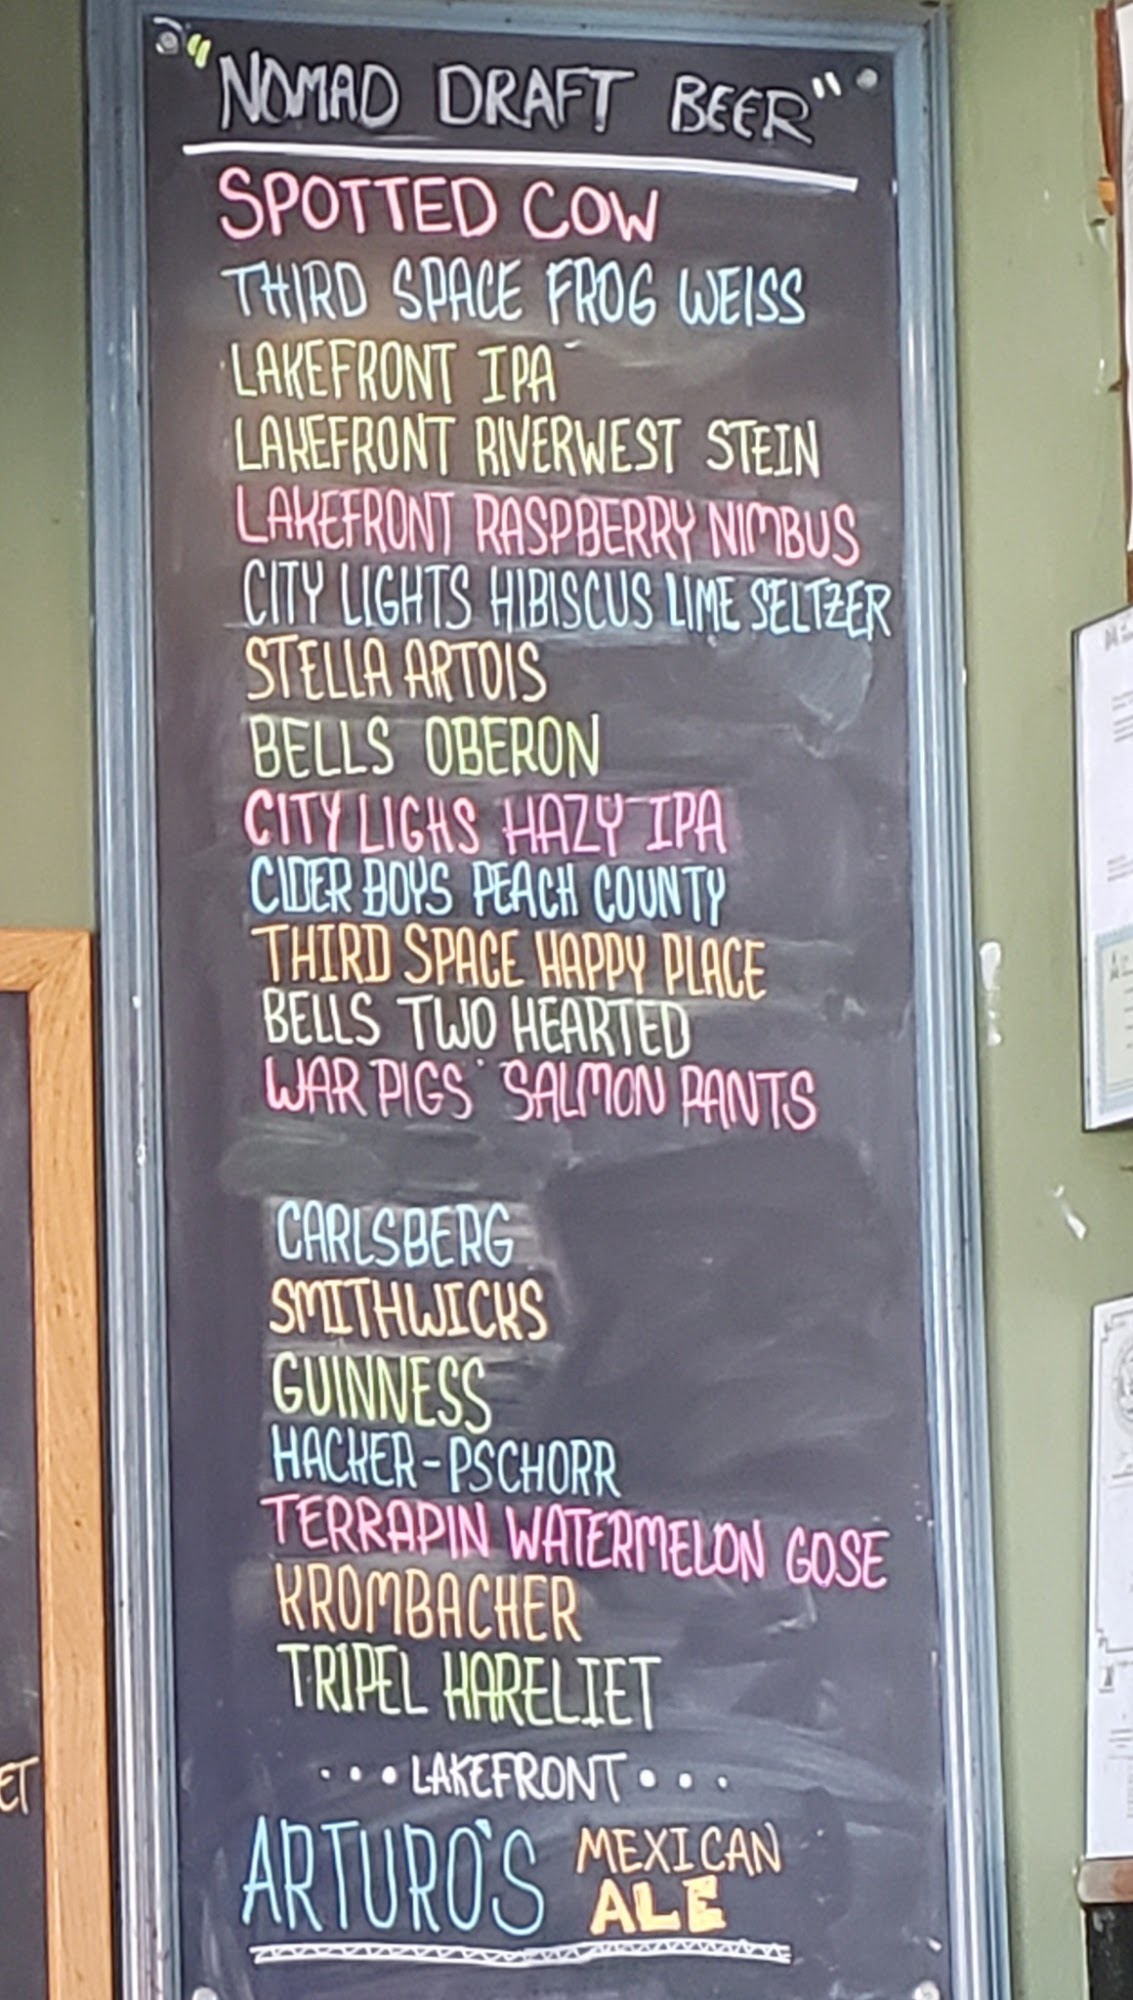 "NOMAD DRAFT BEER"
SPOTTED COW
THIRD SPACE FROG WEISS
LAKEFRONT IPA
LAKEFRONT RIVERWEST STEIN
LAKEFRONT RASPBERRY NIMBUS
CITY LIGHTS HIBISCUS LIME SELTZER
STELLA ARTOIS
BELLS OBERON
CITY LIGHS HAZY IPA
CIDER BOYS PEACH COUNTY
THIRD SPACE HAPPY PLACE
BELLS TWO HEARTED
WAR PIGS SALMON PANTS
CARLSBERG
SMITHWICKS
GUINNESS
HACKER-PSCHORR
TERRAPIN WATERMELON GOSE
KROMBACHER
TRIPEL HARELIET
...LAKEFRONT...
ARTURO'S MEXICAN
ALE
ET